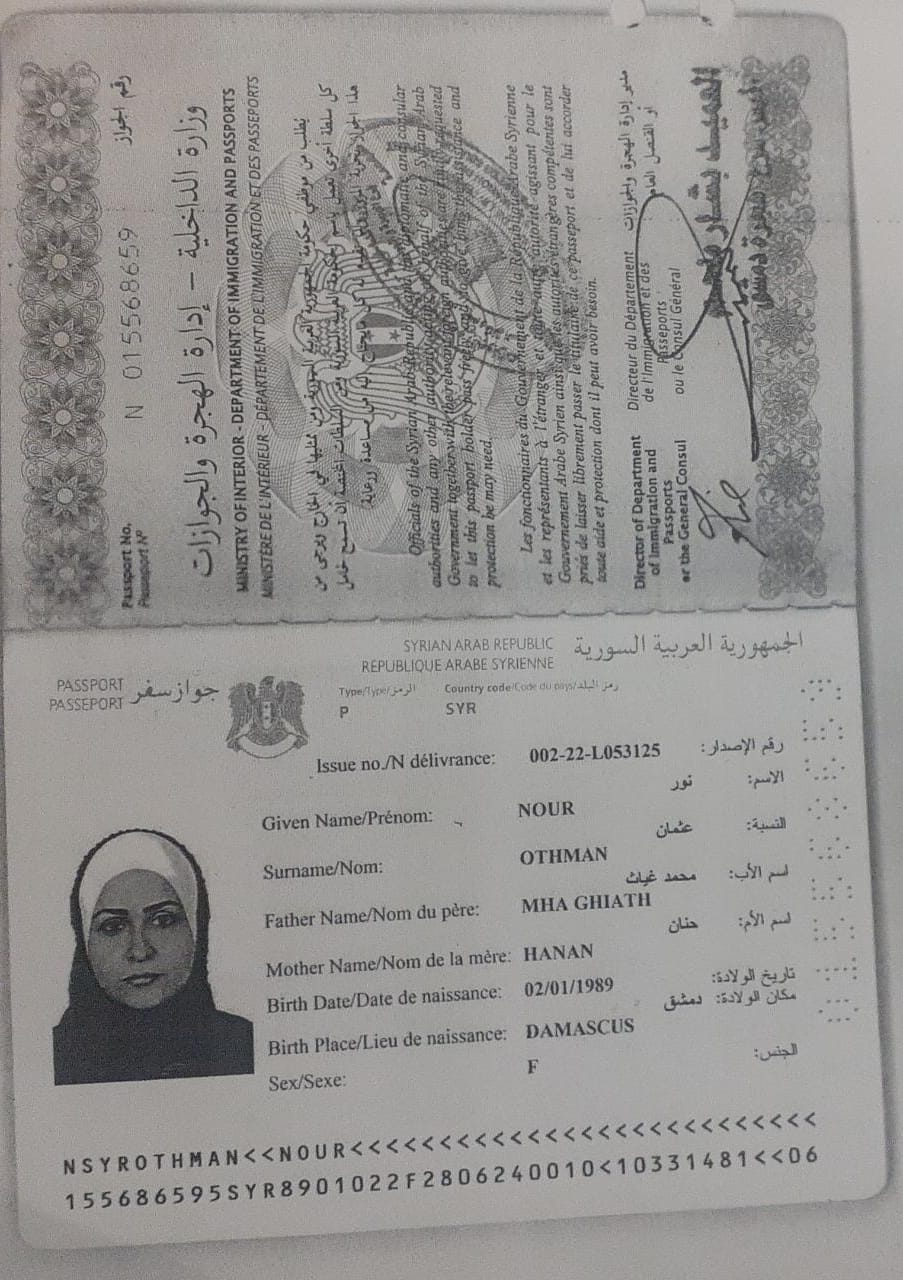 رقم الجواز
N 015568659
Passport No.
Passeport Nº
وزارة الداخلية – إدارة الهجرة والجوازات
MINISTRY OF INTERIOR - DEPARTMENT OF IMMIGRATION AND PASSPORTS
MINISTÈRE DE L'INTÉRIEUR - DÉPARTEMENT DE L'IMMIGRATION ET DES PASSEPORTS
يطلب من موظفي حكومة الجمهورية العربية السورية ومن ممثليها في الخارج ويرجى من
كل سلطة أخرى تعمل باسم
هذا الجواز بحرية المرور من مساعدة ورعاية
Officials of the Syrian Arab Republic and consular
authorities and any other authority behalf of the Syrian Arab
Government together with the relevant foreign are requested
to let this passport holder pass freely assistance and
protection he may need.
Les fonctionnaires du Gouvernement de la République Arabe Syrienne
et les représentants à l'étranger et toute autre autorité agissant pour le
Gouvernement Arabe Syrien ainsi que les autorités étrangères compétentes sont
priés de laisser librement passer le titulaire de ce passeport et de lui accorder
toute aide et protection dont il peut avoir besoin.
Director of Department
of Immigration and
Passports
or the General Consul
Directeur du Département
de l'Immigration et des
Passeports
ou le Consul Général
مدير إدارة الهجرة والجوازات
أو القنصل العام
SYRIAN ARAB REPUBLIC
RÉPUBLIQUE ARABE SYRIENNE
الجمهورية العربية السورية
PASSPORT
PASSEPORT
جواز سفر
Type/Type/الرمز Country code/Code du pays/رمز البلد
P SYR
Issue no./N délivrance: 002-22-L053125 رقم الإصدار:
نور الاسم:
Given Name/Prénom: NOUR
عثمان النسبة:
Surname/Nom: OTHMAN
محمد غياث اسم الأب:
Father Name/Nom du père: MHA GHIATH
حنان اسم الأم:
Mother Name/Nom de la mère: HANAN
Birth Date/Date de naissance: 02/01/1989 تاريخ الولادة:
دمشق مكان الولادة:
Birth Place/Lieu de naissance: DAMASCUS
Sex/Sexe: F الجنس:
NSYROTHMAN<<NOUR<<<<<<<<<<<<<<<<<<<<<<<<<<<
155686595SYR8901022F2806240010<10331481<<06